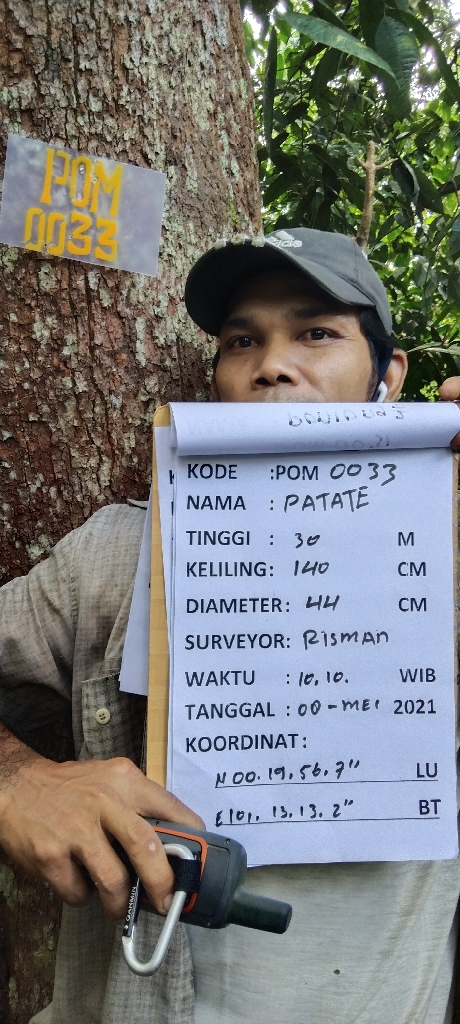 POM
0033
adidas
KODE :POM 0033
NAMA : PATATE
TINGGI : 30 M
KELILING: 140 CM
DIAMETER: 44 CM
SURVEYOR: RISMAN
WAKTU : 10.10. WIB
TANGGAL : 00-MEI 2021
KOORDINAT:
N 00.19.56.7" LU
E101.13.13.2" BT
GARMIN